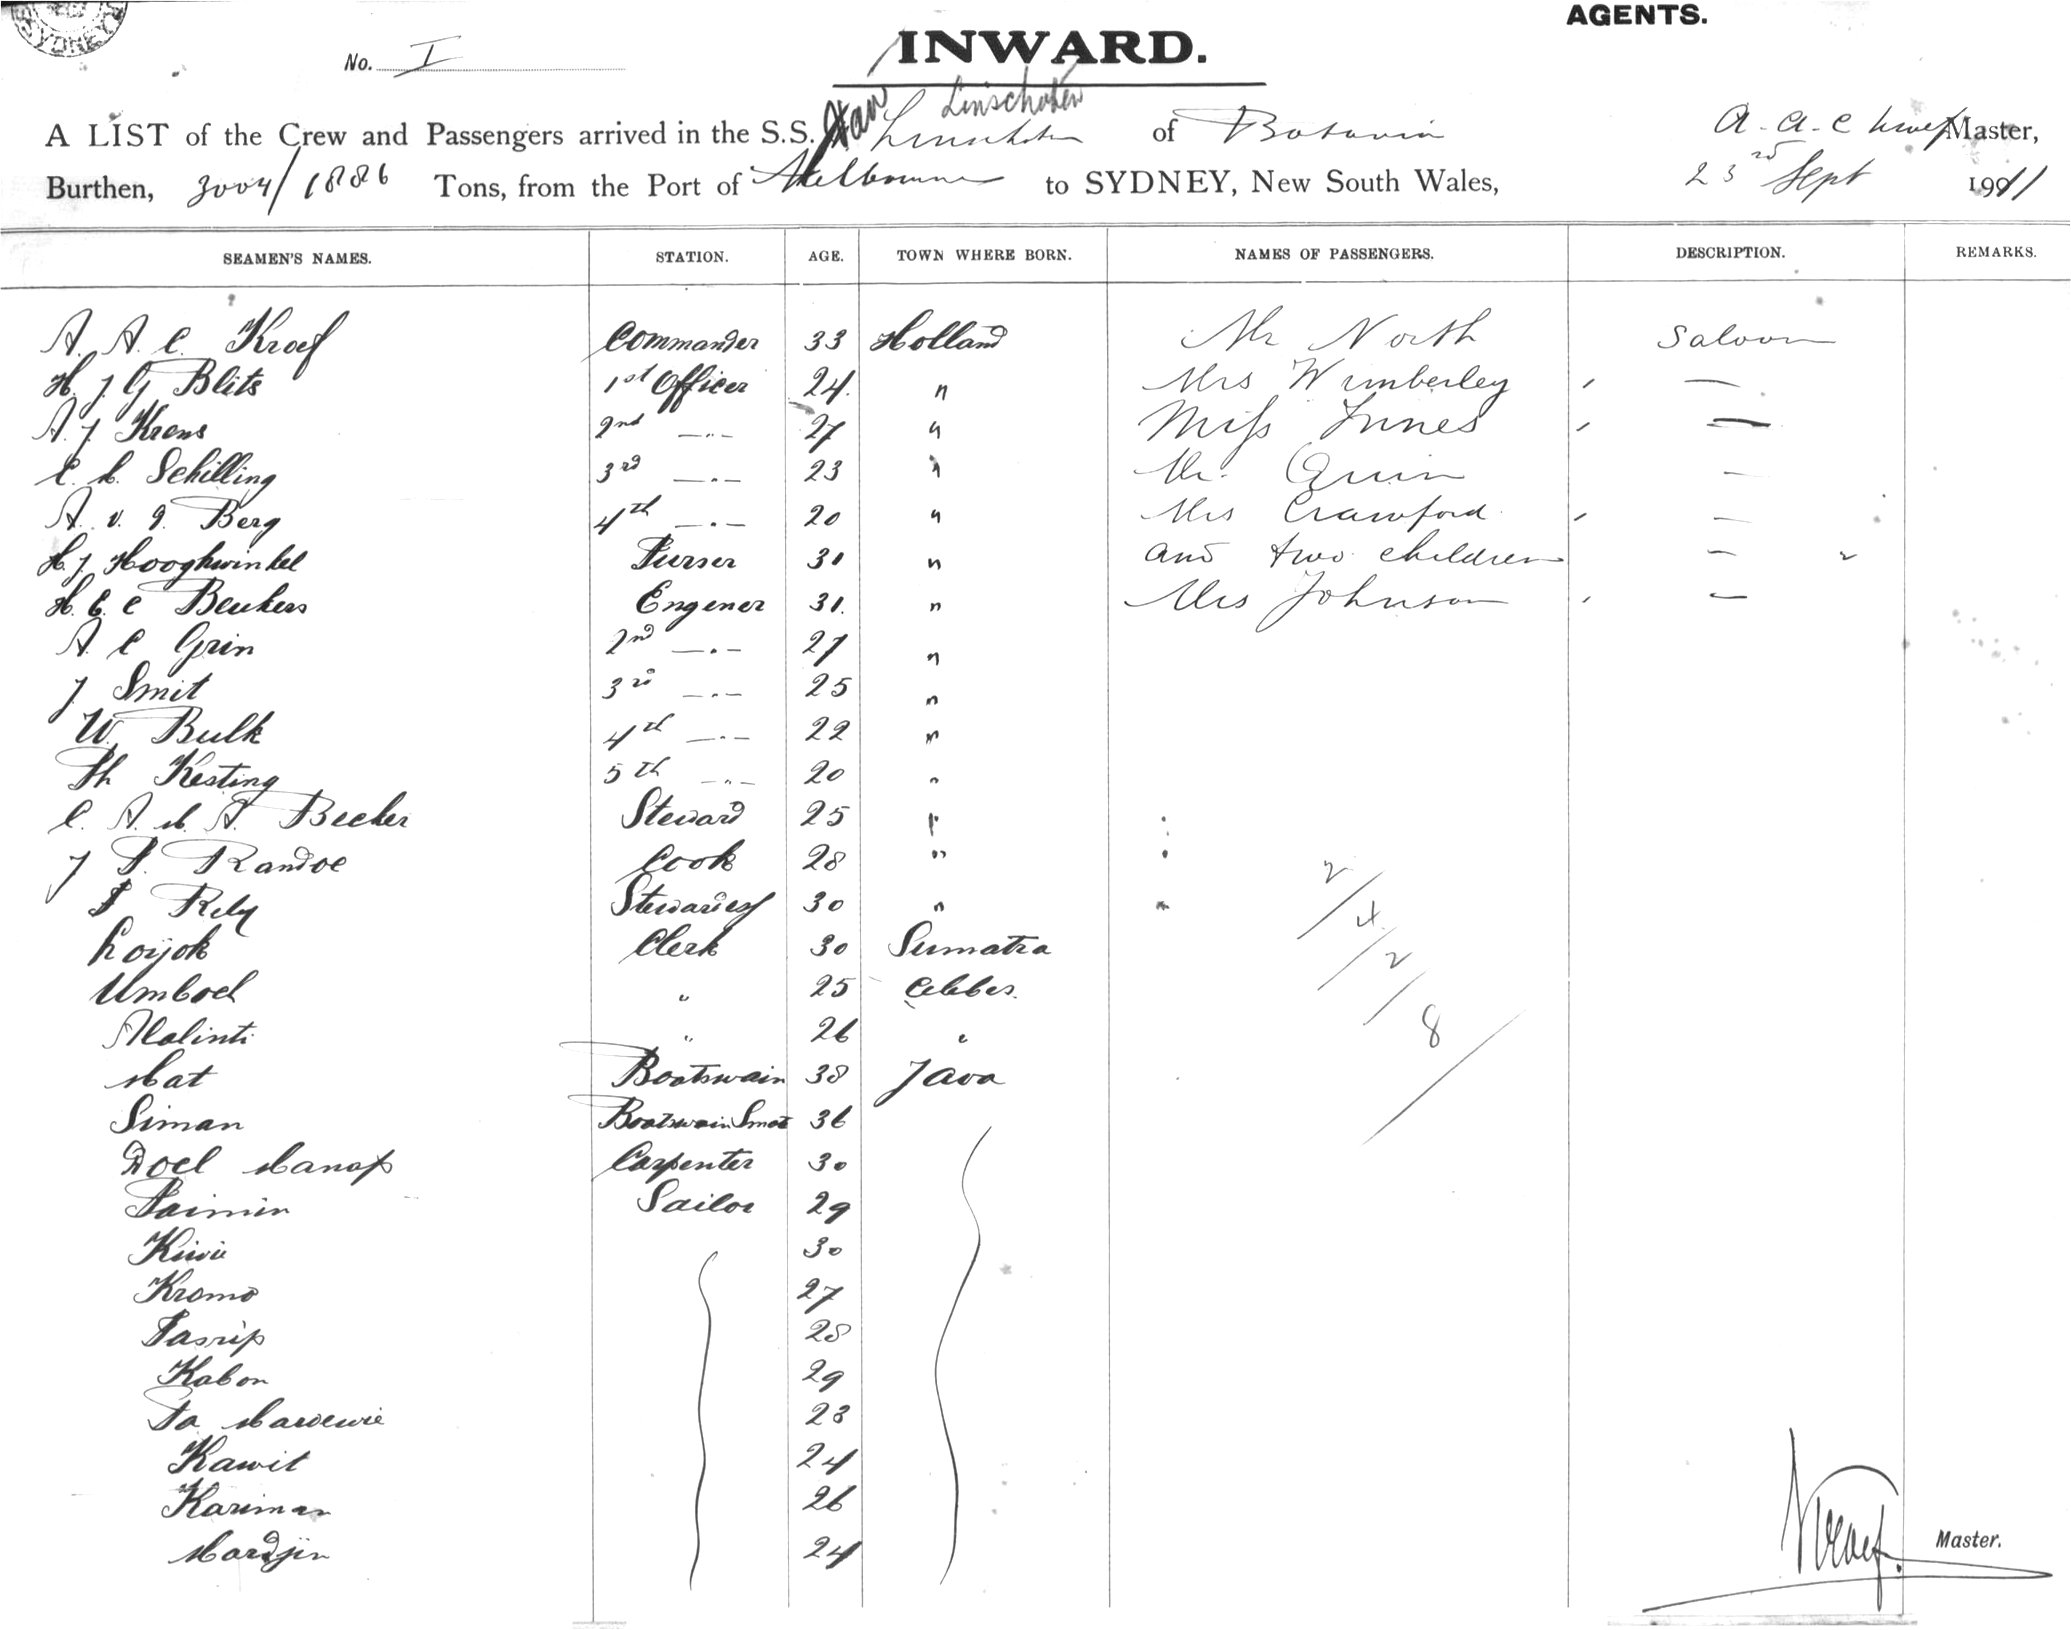 SYDNEY
AGENTS.
No. I
INWARD.
Van Linschoten
A LIST of the Crew and Passengers arrived in the S.S. Linschoten of Batavia A. A. C Kroef Master,
Burthen, 3004/1886 Tons, from the Port of Melbourne to SYDNEY, New South Wales, 23rd Sept 1911
SEAMEN'S NAMES. STATION. AGE. TOWN WHERE BORN. NAMES OF PASSENGERS. DESCRIPTION. REMARKS.
A. A. C. Kroef Commander 33 Holland Mr North Saloon
H. J. G Blits 1st Officer 24. " Mrs Wimberley —
A. J. Krens 2nd —"— 27 " Miss Innes —
C. M. Schilling 3rd —"— 23 " Mr. Quin —
A. v. d. Berg 4th —"— 20 " Mrs Crawford —
H. J. Hooghwinkel Purser 31 " and two children — "
H. C. C Beukers Engener 31. " Mrs Johnson —
A. C Grin 2nd —"— 27 "
J Smit 3rd —"— 25 "
W. Bulk 4th —"— 22 "
Th Kesting 5th —"— 20 "
C. A. M. A. Becker Steward 25 "
J P. Randoe Cook 28 " 2/
P Rely 30 " 4/
Loijok Clerk 30 Sumatra 2/
Umboel " 25 Celebes.
Malinti " 26 " 8/
Mat Boatswain 38 Java
Siman Boatswain Smat 36
Doel Manap Carpenter 30
Paimin Sailor 29
30
Kromo 27
Tasrip 28
Kabon 29
Pa 23
Kawit 24
Kariman 26
Mardjin 24
Kroef. Master.